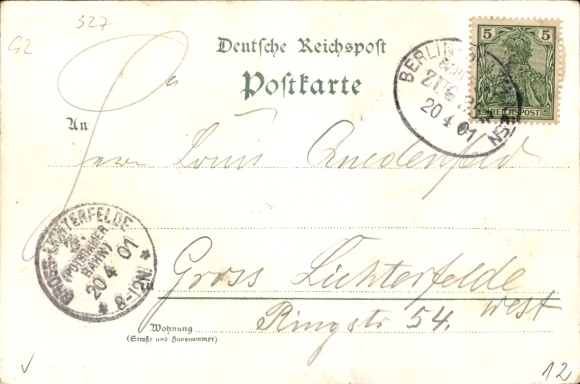 527
G2
Deutsche Reichspost
Postkarte
5 5
REICHSPOST
BERLIN
ZUG
20 4 01
An
Herrn Louis
GROSS-LICHTERFELDE
3.
(POTSDAMER
BAHN)
20 4 01
* 8-12N. *
in
Gross Lichterfelde
West
Ringstr 54.
Wohnung
(Straße und Hausnummer)
12